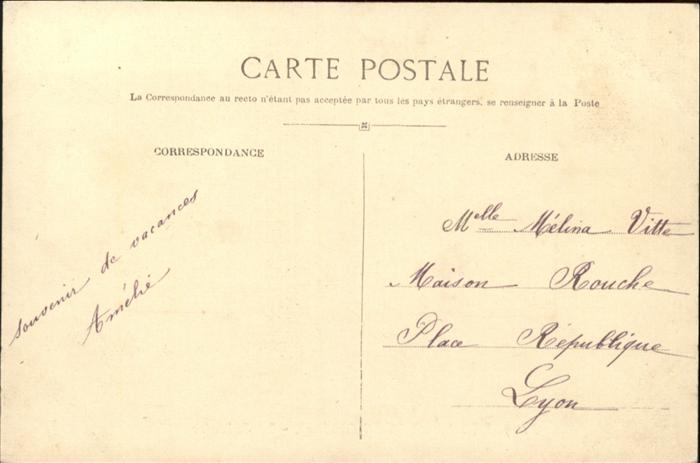 CARTE POSTALE
La Correspondance au recto n'étant pas acceptée par tous les pays étrangers, se renseigner à la Poste
CORRESPONDANCE
souvenir de vacances
Amélie
ADRESSE
Melle Mélina Vitte
Maison Rouche
Place République
Lyon